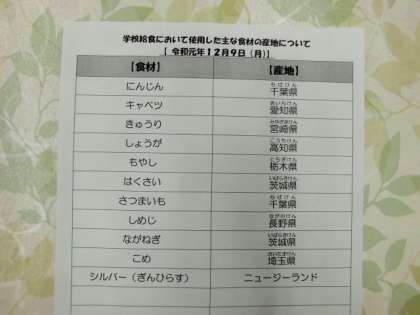 学校給食において使用した主な食材の産地について
【 令和元年１２月９日（月）】
【食材】 【産地】
にんじん 千葉県
キャベツ 愛知県
きゅうり 宮崎県
しょうが 高知県
もやし 栃木県
はくさい 茨城県
さつまいも 千葉県
しめじ 長野県
ながねぎ 茨城県
こめ 埼玉県
シルバー（ぎんひらす） ニュージーランド